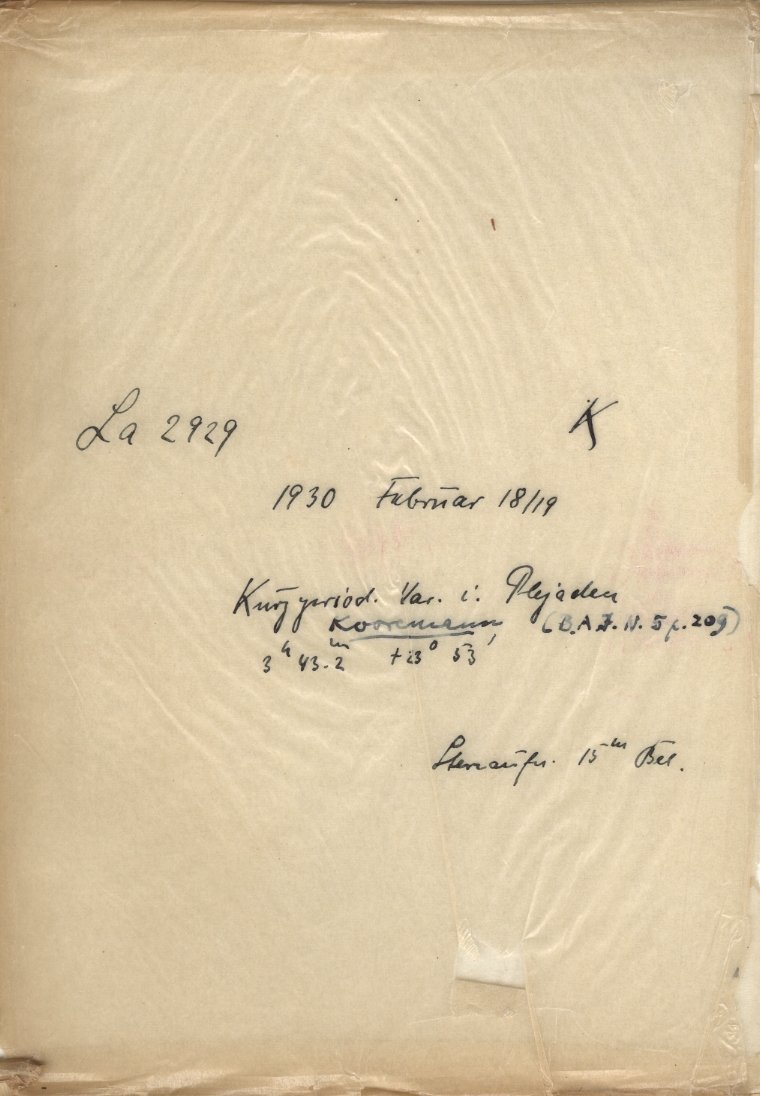 La 2929 K
1930 Februar 18/19
Kurzperiod. Var. i. Plejaden
Kooremann (B.A.Z. N. 5 p. 209)
3h 43.2m +23° 53'
Sternaufn. 15m Bel.